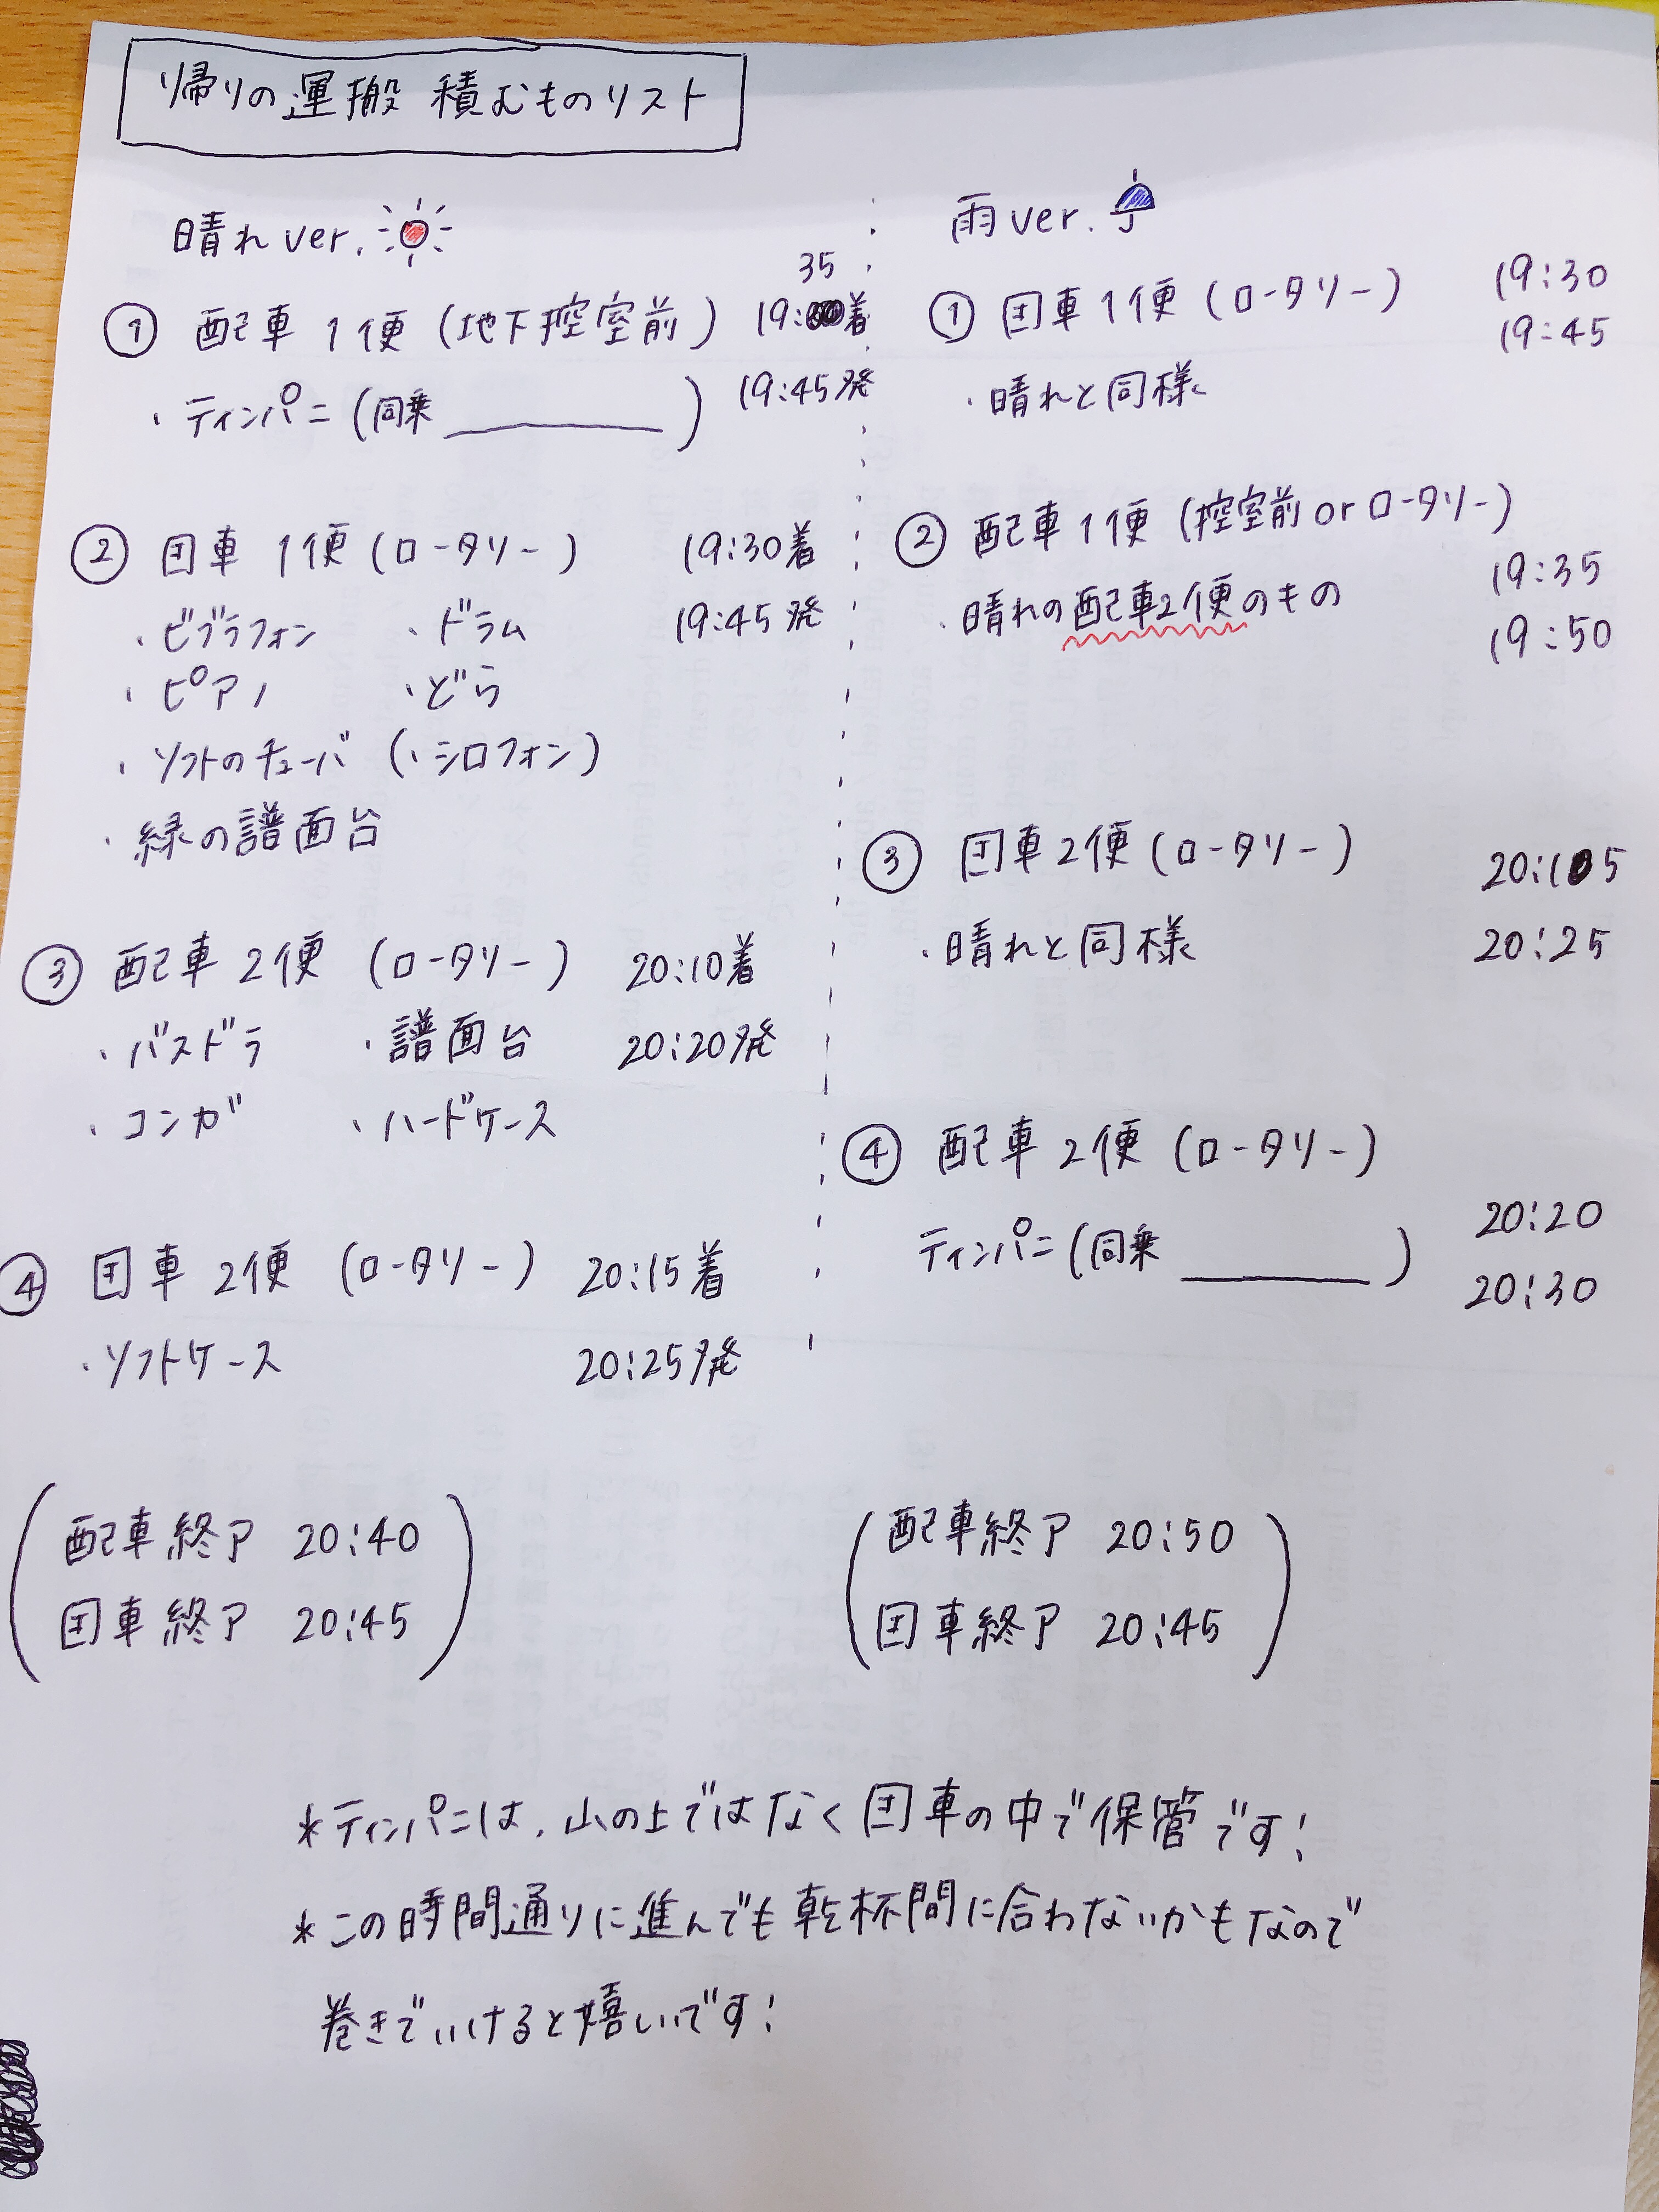 帰りの運搬 積むものリスト
晴れver.
① 配車1便(地下控室前) 19:35着
・ティンパニ(同乗 ) 19:45発
② 団車1便(ロータリー) 19:30着
・ビブラフォン ・ドラム 19:45発
・ピアノ ・どら
・ソフトのチューバ (・シロフォン)
・緑の譜面台
③ 配車2便(ロータリー) 20:10着
・バスドラ ・譜面台 20:20発
・コンガ ・ハードケース
④ 団車2便(ロータリー) 20:15着
・ソフトケース 20:25発
(配車終了 20:40
団車終了 20:45)
雨ver.
① 団車1便(ロータリー) 19:30
19:45
・晴れと同様
② 配車1便(控室前orロータリー)
19:35
・晴れの配車2便のもの
19:50
③ 団車2便(ロータリー) 20:15
・晴れと同様 20:25
④ 配車2便(ロータリー)
20:20
ティンパニ(同乗 )
20:30
(配車終了 20:50
団車終了 20:45)
*ティンパニは、山の上ではなく団車の中で保管です!
*この時間通りに進んでも乾杯間に合わないかもなので
巻きでいけると嬉しいです!